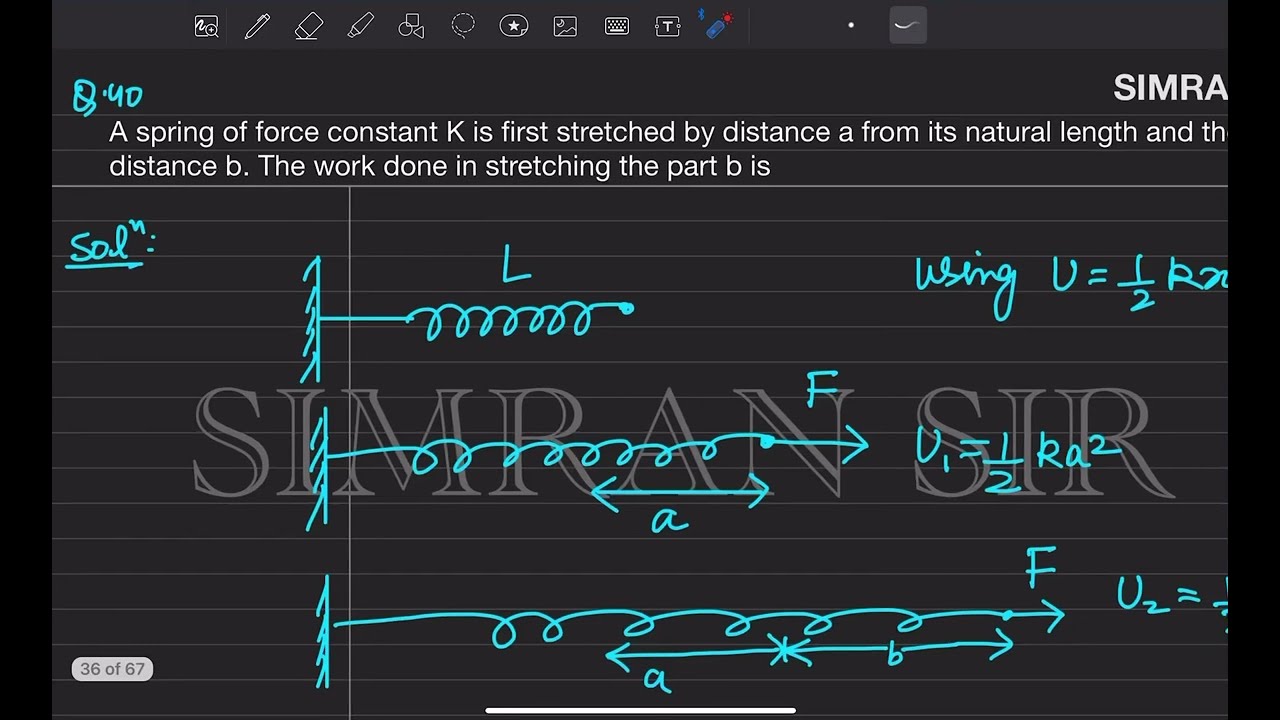 Q.40
SIMRA
A spring of force constant K is first stretched by distance a from its natural length and
distance b. The work done in stretching the part b is
Solⁿ:
L
using U = 1/2 kx
F
SIMRAN SIR
U₁ = 1/2 ka²
a
F
U₂ =
a
b
36 of 67